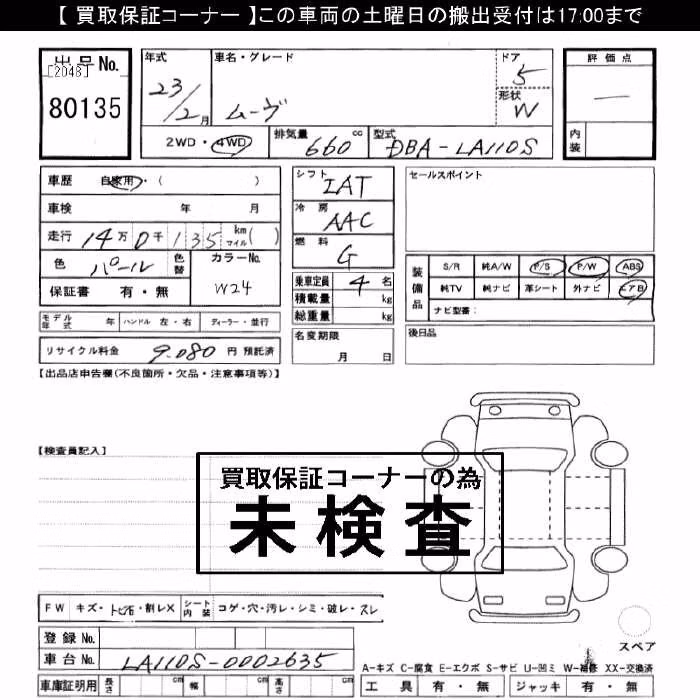 【 買取保証コーナー 】この車両の土曜日の搬出受付は17:00まで
出品No.
[2048]
80135
年式
23/2月
車名・グレード
ムーヴ
ドア
5
形状
W
評価点
—
内装
2WD・4WD
排気量
660 cc
型式
DBA-LA110S
車歴 自家用・( )
車検 年 月
走行 14万0千135 km マイル( )
色 パール 色替
カラーNo.
W24
保証書 有・無
シフト IAT
冷房 AAC
燃料 G
乗車定員 4 名
積載量 kg
総重量 kg
セールスポイント
装備品
S/R 純A/W P/S P/W ABS
純TV 純ナビ 革シート 外ナビ エアB
ナビ型番:
モデル年式 年 ハンドル 左・右 ディーラー・並行
名変期限
月 日
後日品
リサイクル料金 9.080 円 預託済
【出品店申告欄(不良箇所・欠品・注意事項等)】
【検査員記入】
買取保証コーナーの為
未検査
FW キズ・トビ石・割レX シート内装 コゲ・穴・汚レ・シミ・破レ・スレ
登録No.
車台No. LA110S-0002635
スペア
A-キズ C-腐食 E-エクボ S-サビ U-凹ミ W-補修 XX-交換済
車庫証明用 長さ cm 幅 cm 高さ cm
工具 有・無 ジャッキ 有・無